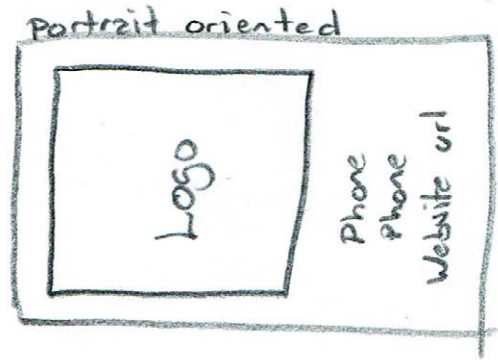 Portrait oriented
Logo
Phone
Phone
Website url